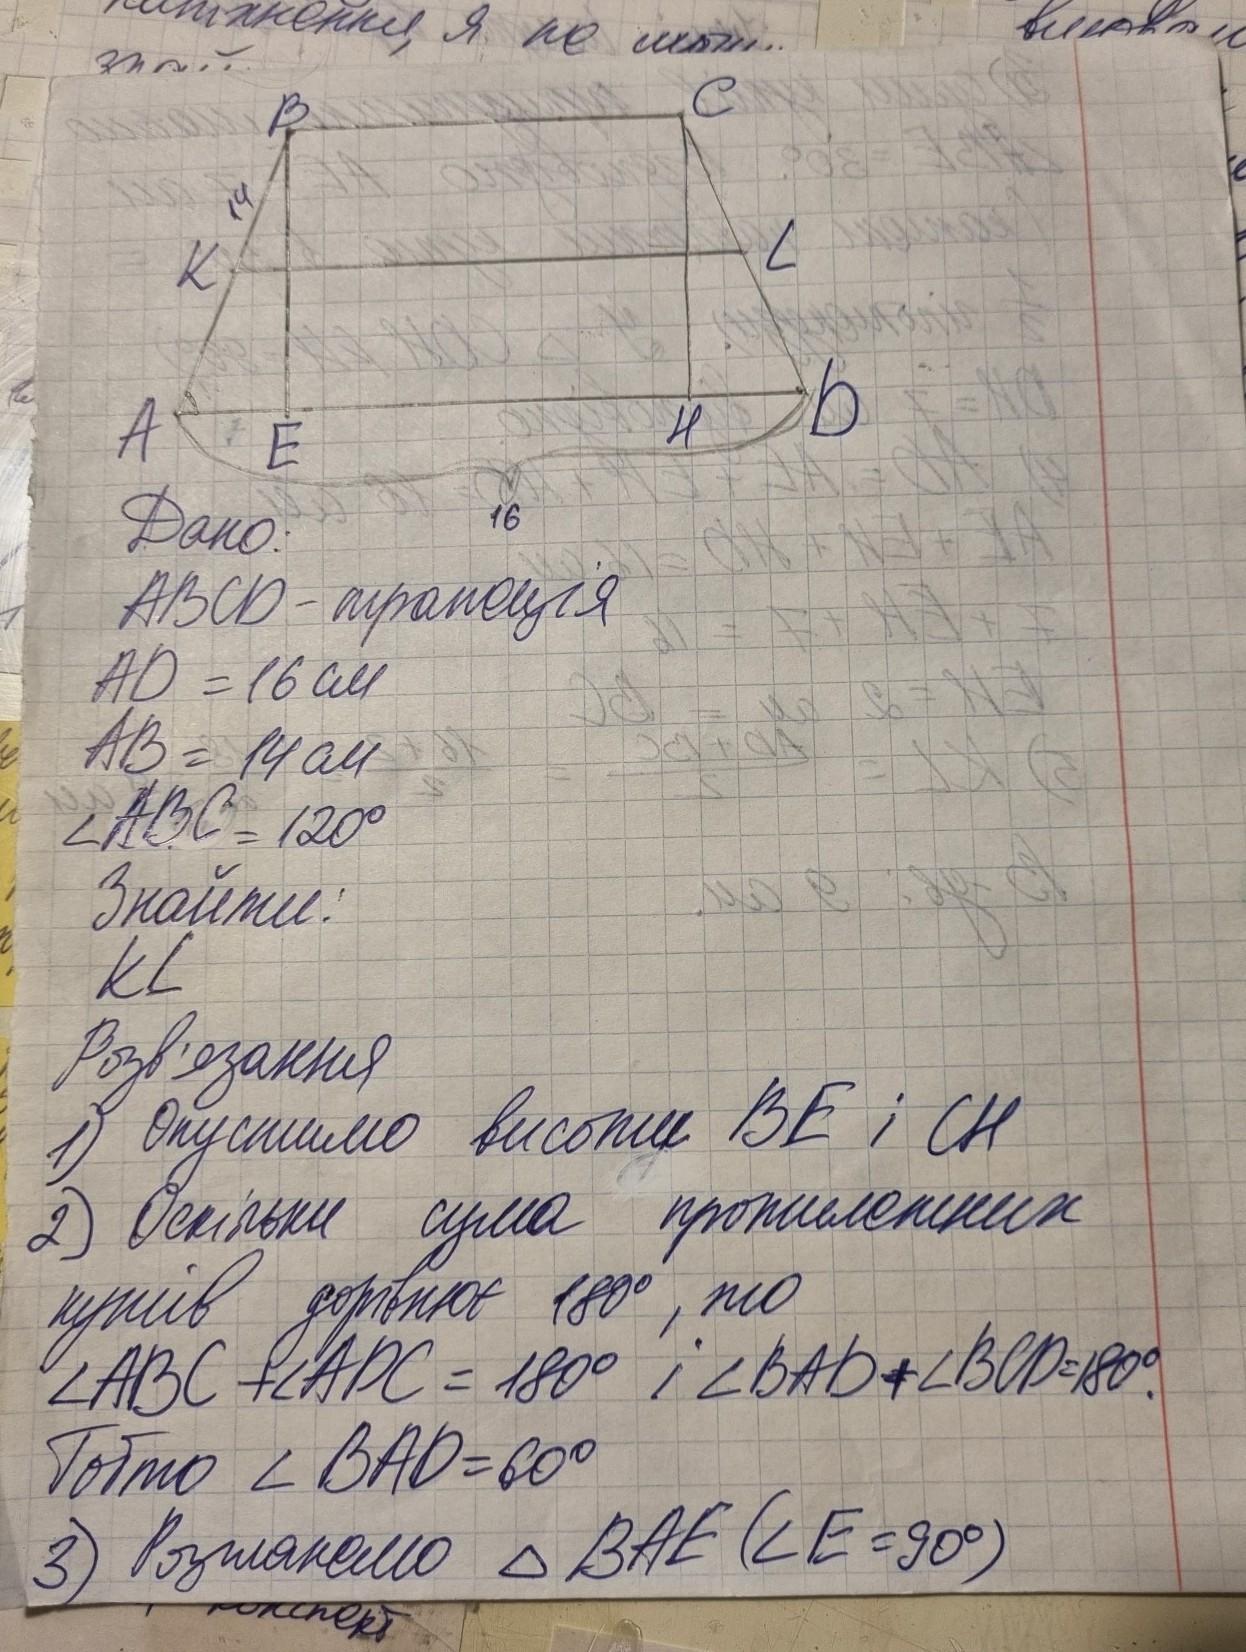 B
C
14
K
L
A
E
H
D
16
Дано:
ABCD - трапеція
AD = 16 см
AB = 14 см
∠ABC = 120°
Знайти:
KL
Розв'язання
1) Опустимо висоти BE і CH
2) Оскільки сума протилежних
кутів дорівнює 180°, то
∠ABC + ∠ADC = 180° і ∠BAD + ∠BCD = 180°.
Тобто ∠BAD = 60°
3) Розглянемо △ BAE (∠E = 90°)
конспект